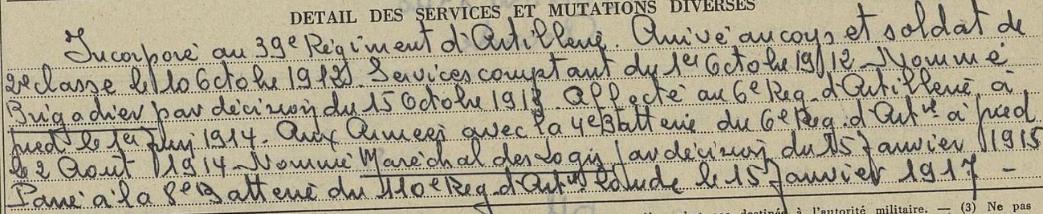 DETAIL DES SERVICES ET MUTATIONS DIVERSES
Incorporé au 39e Régiment d'Artillerie. Arrivé au corps et soldat de
2e classe le 10 Octobre 1912. Services comptant du 1er Octobre 1912 - Nommé
Brigadier par décision du 15 Octobre 1913. Affecté au 6e Reg. d'Artillerie à
pied le 1er Juin 1914. Aux Armées avec la 4e Batterie du 6e Reg. d'Artie à pied
le 2 Août 1914 - Nommé Maréchal des Logis par décision du 15 Janvier 1915
Passé à la 8e Batterie du 110e Reg. d'Artie Lourde le 15 Janvier 1917 -
à l'autorité militaire. — (3) Ne pas